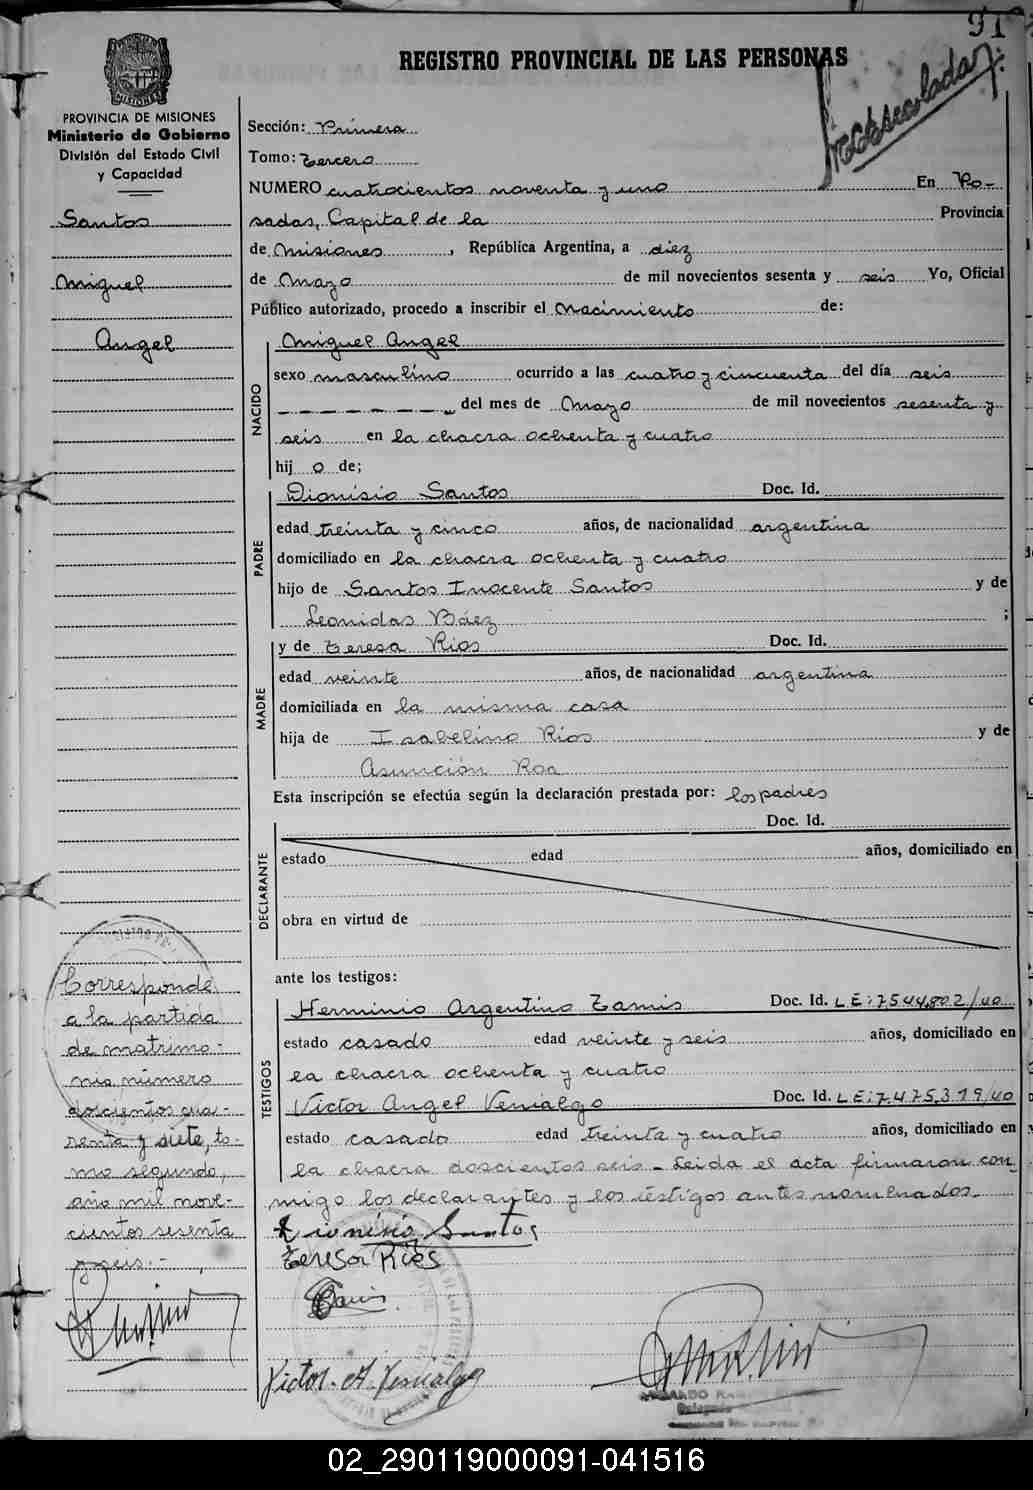 91
REGISTRO PROVINCIAL DE LAS PERSONAS
MISIONES
PROVINCIA DE MISIONES
Ministerio de Gobierno
División del Estado Civil
y Capacidad
Santos
Miguel
Angel
Sección: Primera
Tomo: Tercero
NUMERO cuatrocientos noventa y uno En Po-
sadas, Capital de la Provincia
de Misiones, República Argentina, a diez
de Mayo de mil novecientos sesenta y seis Yo, Oficial
Público autorizado, procedo a inscribir el Nacimiento de:
NACIDO
Miguel Angel
sexo masculino ocurrido a las cuatro y cincuenta del día seis
del mes de Mayo de mil novecientos sesenta y
seis en la chacra ochenta y cuatro
hij o de;
PADRE
Dionisio Santos Doc. Id.
edad treinta y cinco años, de nacionalidad argentina
domiciliado en la chacra ochenta y cuatro
hijo de Santos Inocente Santos y de
Leonidas Báez ;
MADRE
y de Teresa Rios Doc. Id.
edad veinte años, de nacionalidad argentina
domiciliada en la misma casa
hija de Isabelino Rios y de
Asunción Roa
Esta inscripción se efectúa según la declaración prestada por: los padres
DECLARANTE
Doc. Id.
estado edad años, domiciliado en
obra en virtud de
ante los testigos:
TESTIGOS
Herminio Argentino Tamis Doc. Id. LE:7.544.802/40
estado casado edad veinte y seis años, domiciliado en
la chacra ochenta y cuatro
Victor Angel Venialgo Doc. Id. LE:7.475.319/40
estado casado edad treinta y cuatro años, domiciliado en
la chacra doscientos seis - Leida el acta firmaron con-
migo los declarantes y los testigos antes nombrados.
Dionisio Santos
Teresa Rios
Victor A. Venialgo
Corresponde
a la partida
de matrimo-
nio número
doscientos cua-
renta y siete, to-
mo segundo,
año mil nove-
cientos sesenta
y seis.-
02_290119000091-041516